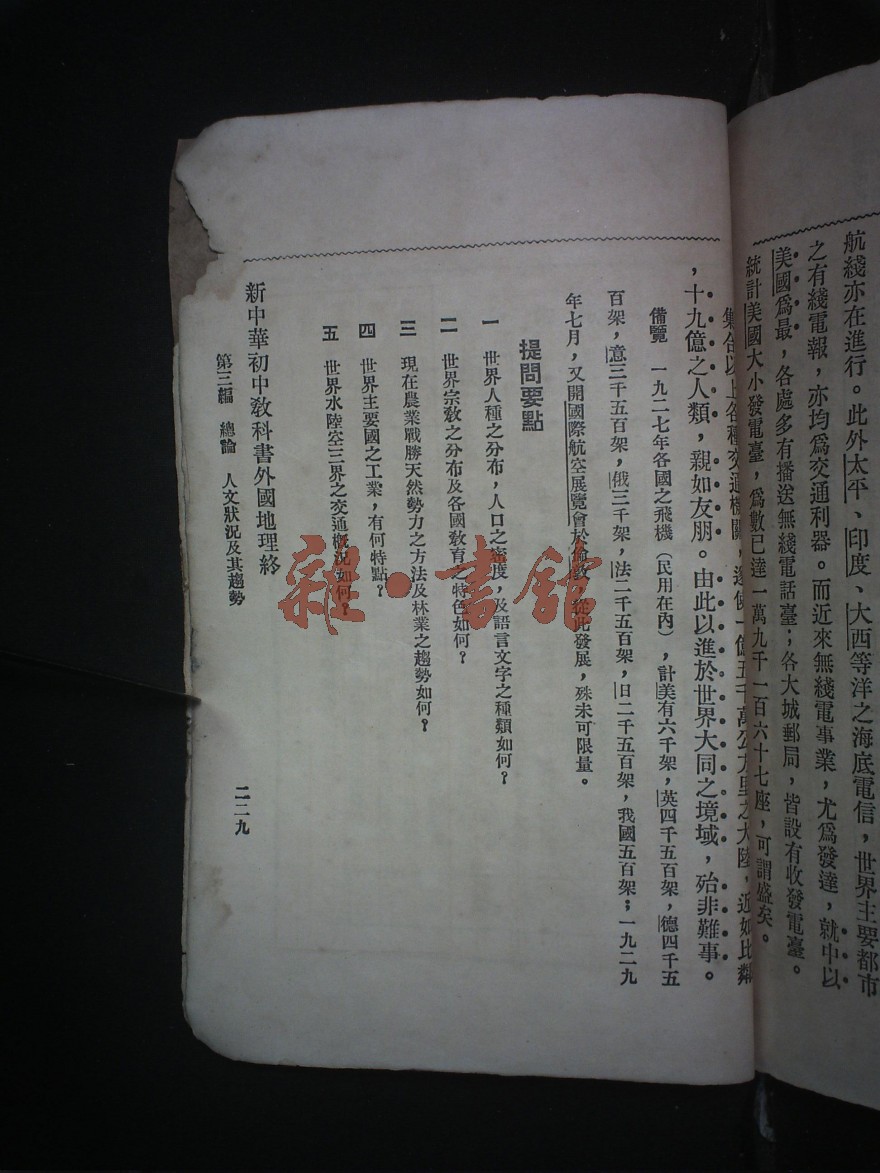 航綫亦在進行。此外太平、印度、大西等洋之海底電信，世界主要都市
之有綫電報，亦均爲交通利器。而近來無綫電事業，尤爲發達，就中以
美國爲最，各處多有播送無綫電話臺；各大城郵局，皆設有收發電臺。
統計美國大小發電臺，爲數已達一萬九千一百六十七座，可謂盛矣。
集合以上各種交通機關，遂使一億五千萬公方里之大陸，近如比鄰
，十九億之人類，親如友朋。由此以進於世界大同之境域，殆非難事。
備覽　一九二七年各國之飛機（民用在內），計美有六千架，英四千五百架，德四千五
百架，意三千五百架，俄三千架，法二千五百架，日二千五百架，我國五百架；一九二九
年七月，又開國際航空展覽會於倫敦，從此發展，殊未可限量。
提問要點
一　世界人種之分布，人口之密度，及語言文字之種類如何？
二　世界宗教之分布及各國教育之特色如何？
三　現在農業戰勝天然勢力之方法及林業之趨勢如何？
四　世界主要國之工業，有何特點？
五　世界水陸空三界之交通概況如何？
新中華初中教科書外國地理終
第三編　總論　人文狀況及其趨勢
二二九
雜·書館